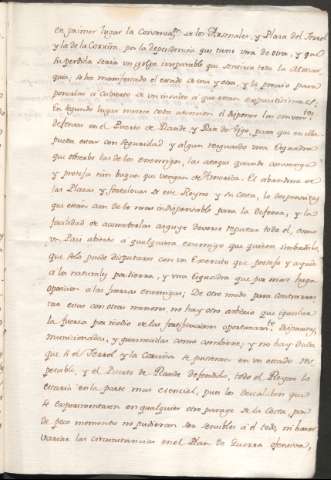 en primer lugar la Conservaⁿ. de los Arsenales, y Plaza del Ferrol
y la de la Coruña, por la dependencia que tiene una de otra, y que
su perdida seria un golpe irreparable que sentiria toda la Monar
quia; he manifestado el estado de una y otra, y lo preciso para
ponerlas à cubierto de un insulto à que estan
En segundo lugar merece toda atencion el disponer las conven.^tes
defensas en el Puerto de Rande y Ria de Vigo, para que en ella
pueda estar con seguridad y algun resguardo una Esquadra
que observe las de los enemigos, las ataque quando convenga
y proteja los buques que vengan de America. El abandono de
las Plazas y fortalezas de este Reyno y su Costa, lo desproveidas
que estan aun de lo mas indispensable para la defensa, y la
facilidad de acometerlas arguye deverse reputar todo èl, como
un Pais abierto a qualquiera enemigo que quiera imbadirle,
que solo puede disputarse con un Exercito que proteja y ayude
a los naturales por tierra, y una Esquadra que por mar haga
oposicion a las fuerzas enemigas; De otro modo para contrarres
tar estas con otras menores no hay otro arbitrio que igualar
la fuerza por medio de las fortificaciones oportunam.^te dispuestas,
municionadas, y guarnecidas como combiene; y no hay duda
que si el Ferrol y la Coruña se pusieran en un estado res
petable, y el Puerto de Rande defendido, todo el Reyno lo
estaria en la parte mas esencial, pues los descalabros que
se experimentasen en qualquier otro parage de la Costa, por
de poco momento no pudieran ser sensibles à el todo, ni hacer
variar las circunstancias en el Plan de Guerra ofensiva,